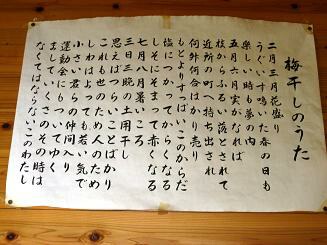 梅干しのうた
二月三月花盛り
うぐいす鳴いた春の日も
楽しい時も夢の内
五月六月実がなれば
枝からふるい落とされて
近所の町へ持ち出され
何升何合はかり売り
もとよりすっぱいこのからだ
塩につかってからくなる
しそにそまって赤くなる
七月八月暑いころ
三日三晩の土用干し
思えばつらいことばかり
これも世のため人のため
しわはよっても若い気で
小さい君らの仲間入り
運動会にもついてゆく
ましていくさのその時は
なくてはならないこのわたし